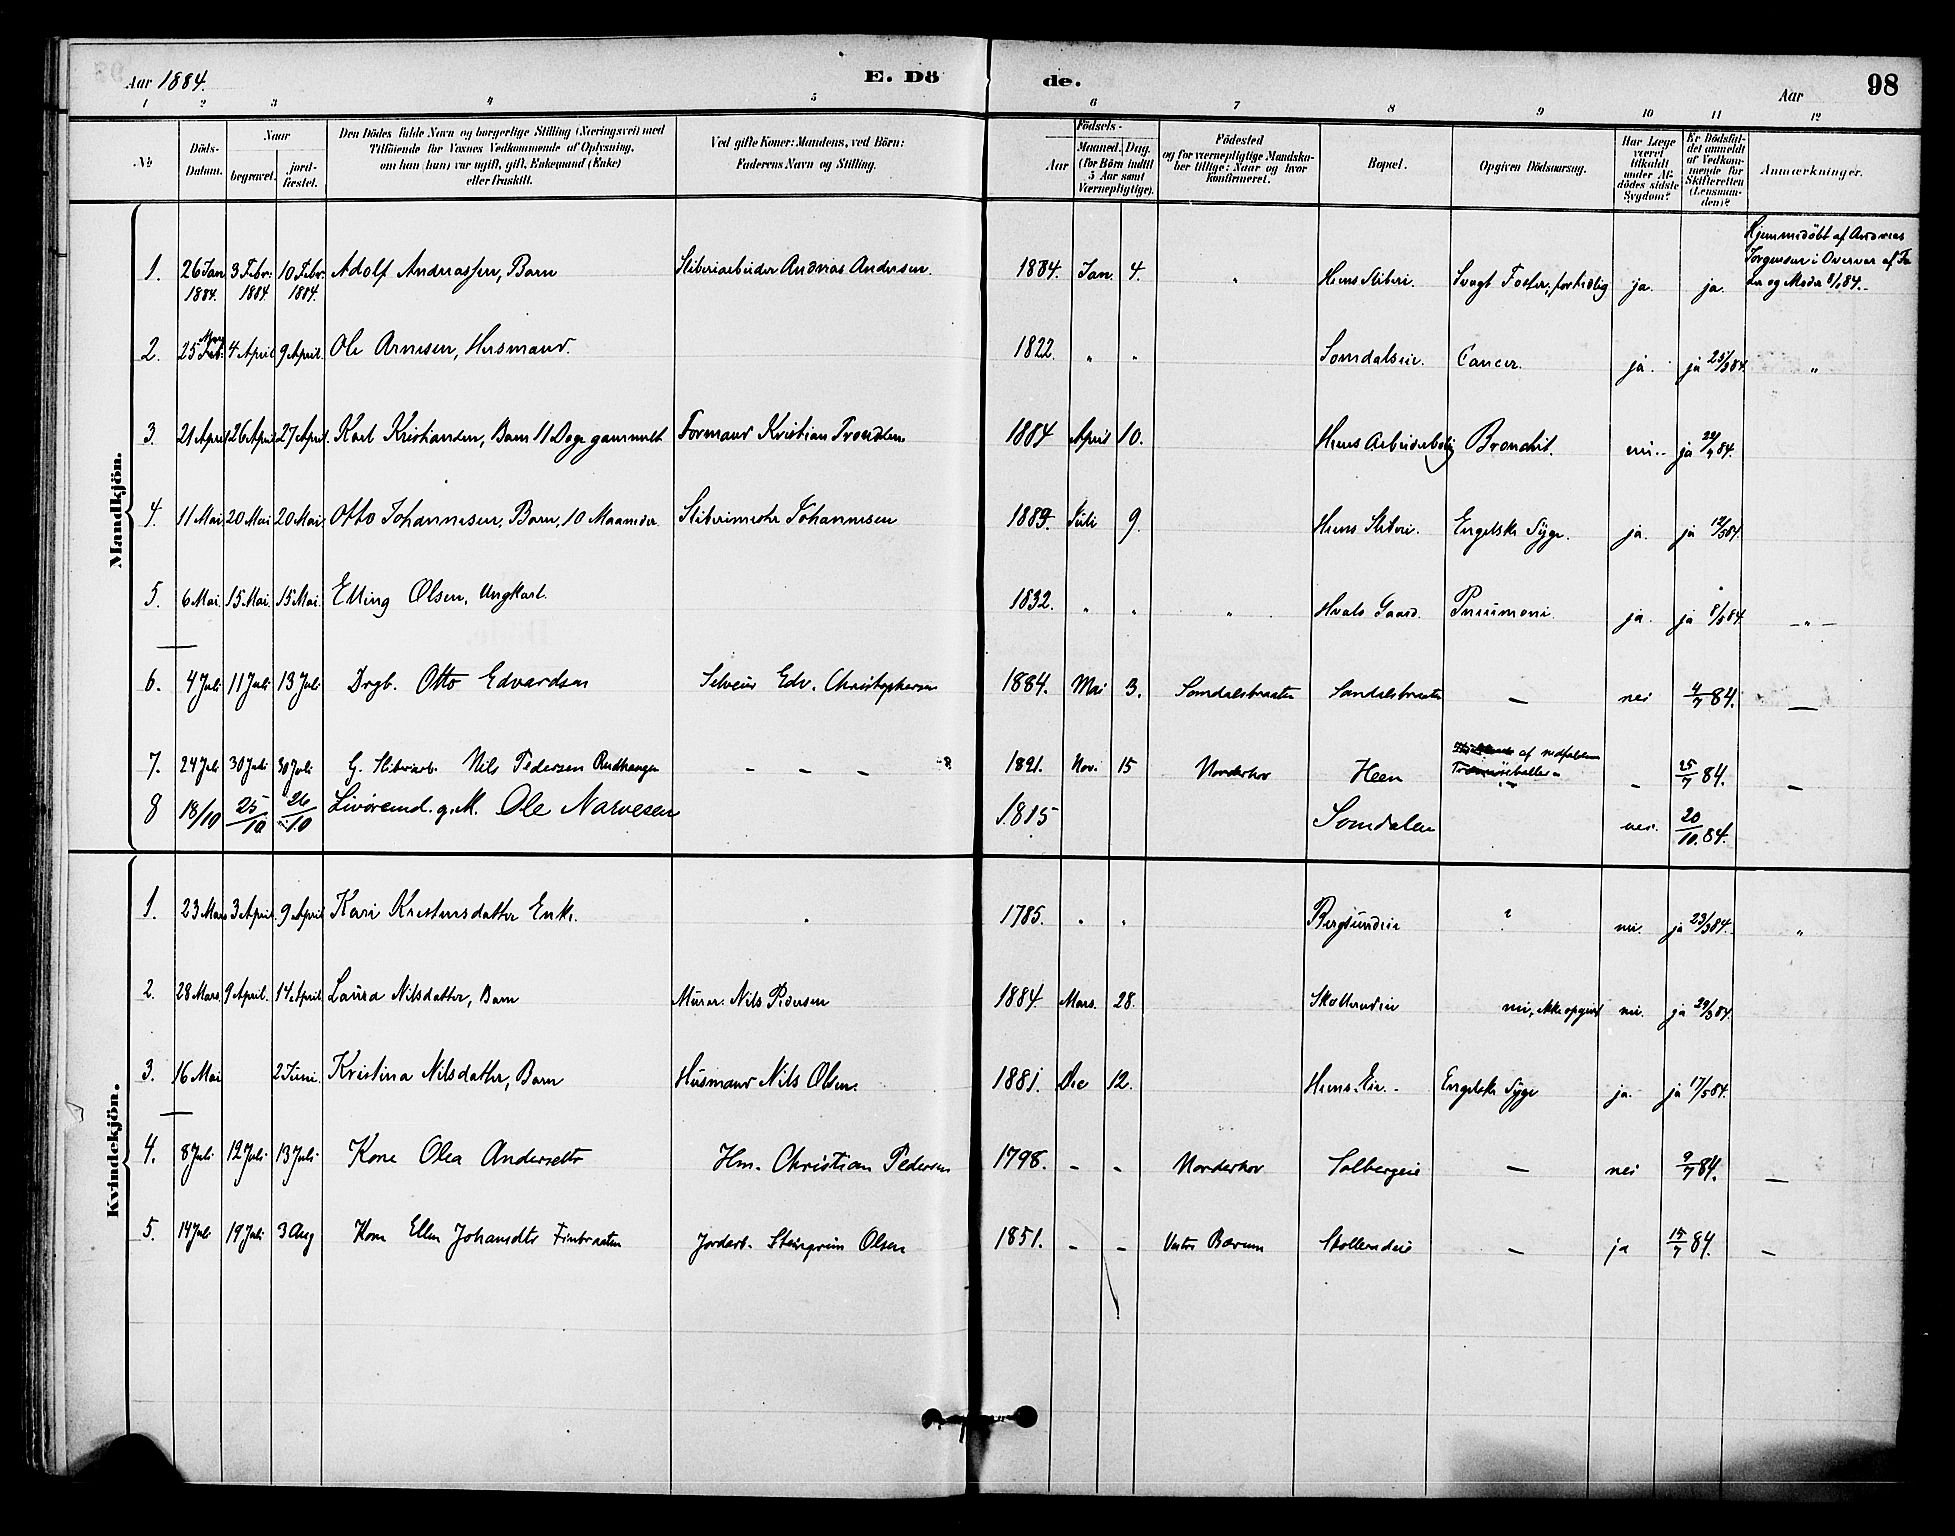 Aar 1884. E. Dö de. Aar 98
1 2 3 4 5 6 7 8 9 10 11 12
No
Döds-Datum.
Naar
begravet.
jord-fæstet.
Den Dödes fulde Navn og borgerlige Stilling (Næringsvei) med
Tilföiende for Voxnes Vedkommende af Oplysning,
om han (hun) var ugift, gift, Enkemand (Enke)
eller fraskilt.
Ved gifte Koner: Mandens, ved Börn:
Faderens Navn og Stilling.
Födsels-
Aar
Maaned. Dag.
(for Börn indtil
5 Aar samt
Værnepligtige).
Födested
og for værnepligtige Mandska-
ber tillige: Naar og hvor
konfirmeret.
Bopæl.
Opgiven Dödsaarsag.
Har Læge
været
tilkaldt
under Af-
dödes sidste
Sygdom?
Er Dödsfal-
det anmeldt
af Vedkom-
mende for
Skifteretten
(Lensman-
den)?
Anmærkninger.
Mandkjön.
1. 26 Jan 1884. 3 Febr. 1884 10 Febr. 1884. Adolf Andreassen, Barn Sliberiarbeider Andreas Andersen. 1884. Jan. 4. " Hens Sliberi. Svagt Foster, fortidlig ja. ja. Hjemmedöbt af Andreas
Jörgensen i Overvær af Fa
der og Moder
2. 25 Mars 4 April 9 April. Ole Arnesen, Husmand. 1822. " " Somdalseie. Cancer. ja. ja 25/3 84. "
3. 21 April 26 April 27 April. Karl Kristiansen, Barn 11 Dage gammelt Formand Kristian Trondsen 1884 April 10. Hens Arbeiderbolig Bronchit. nei. ja 22/4 84.
4. 11 Mai 20 Mai 20 Mai. Otto Johannesen, Barn, 10 Maaneder. Sliberimester Johannesen 1883. Juli 9. Hens Sliberi. Engelske Syge. ja. ja 12/5 84.
5. 6 Mai. 15 Mai. 15 Mai. Elling Olsen, Ungkarl. 1832. " " " Hvals Gaard. Pneumoni. ja. ja 8/5 84. — " —
6. 4 Juli 11 Juli 13 Juli Drgb. Otto Edvardsen Selveier Edv. Christophersen 1884. Mai 3. Somdalsbraaten Somdalsbraaten — nei 4/7 84. —
7. 24 Juli 30 Juli 30 Juli G. Sliberiarb. Nils Pedersen Rudhaugen — — — 1821. Nov. 15 Norderhov Heen af nedfaldne
– 25/7 84. —
8 18/10 25/10 26/10 Livöremd. g. M. Ole Narvesen 1815 Somdalen nei. 20/10 84.
Kvindekjön.
1. 23 Mars 3 April. 9 April Kari Kristensdatter Enke. 1785. " " Bergsundeie ? nei. ja 23/3 84. "
2. 28 Mars. 9 April. 14 April Laura Nilsdatter, Barn Murer Nils Pedersen 1884 Mars. 28. Skollerudeie nei, ikke opgivet nei. ja 29/3 84.
3. 16 Mai 2 Juni. Kristina Nilsdatter, Barn Husmand Nils Olsen. 1881. Dec 12. Hens Eie. Engelske Syge ja. ja 17/5 84.
4. 8 Juli 12 Juli 13 Juli Kone Olea Andersdtr Hm. Christian Pedersen 1798. – – Norderhov Solbergeie — nei 9/7 84. —
5. 14 Juli 19 Juli 3 Aug Kone Ellen Johansdtr Finbraaten Jorderb. Steingrim Olsen 1851. – – Vestre Bærum Skollerudeie — ja 15/7 84. —